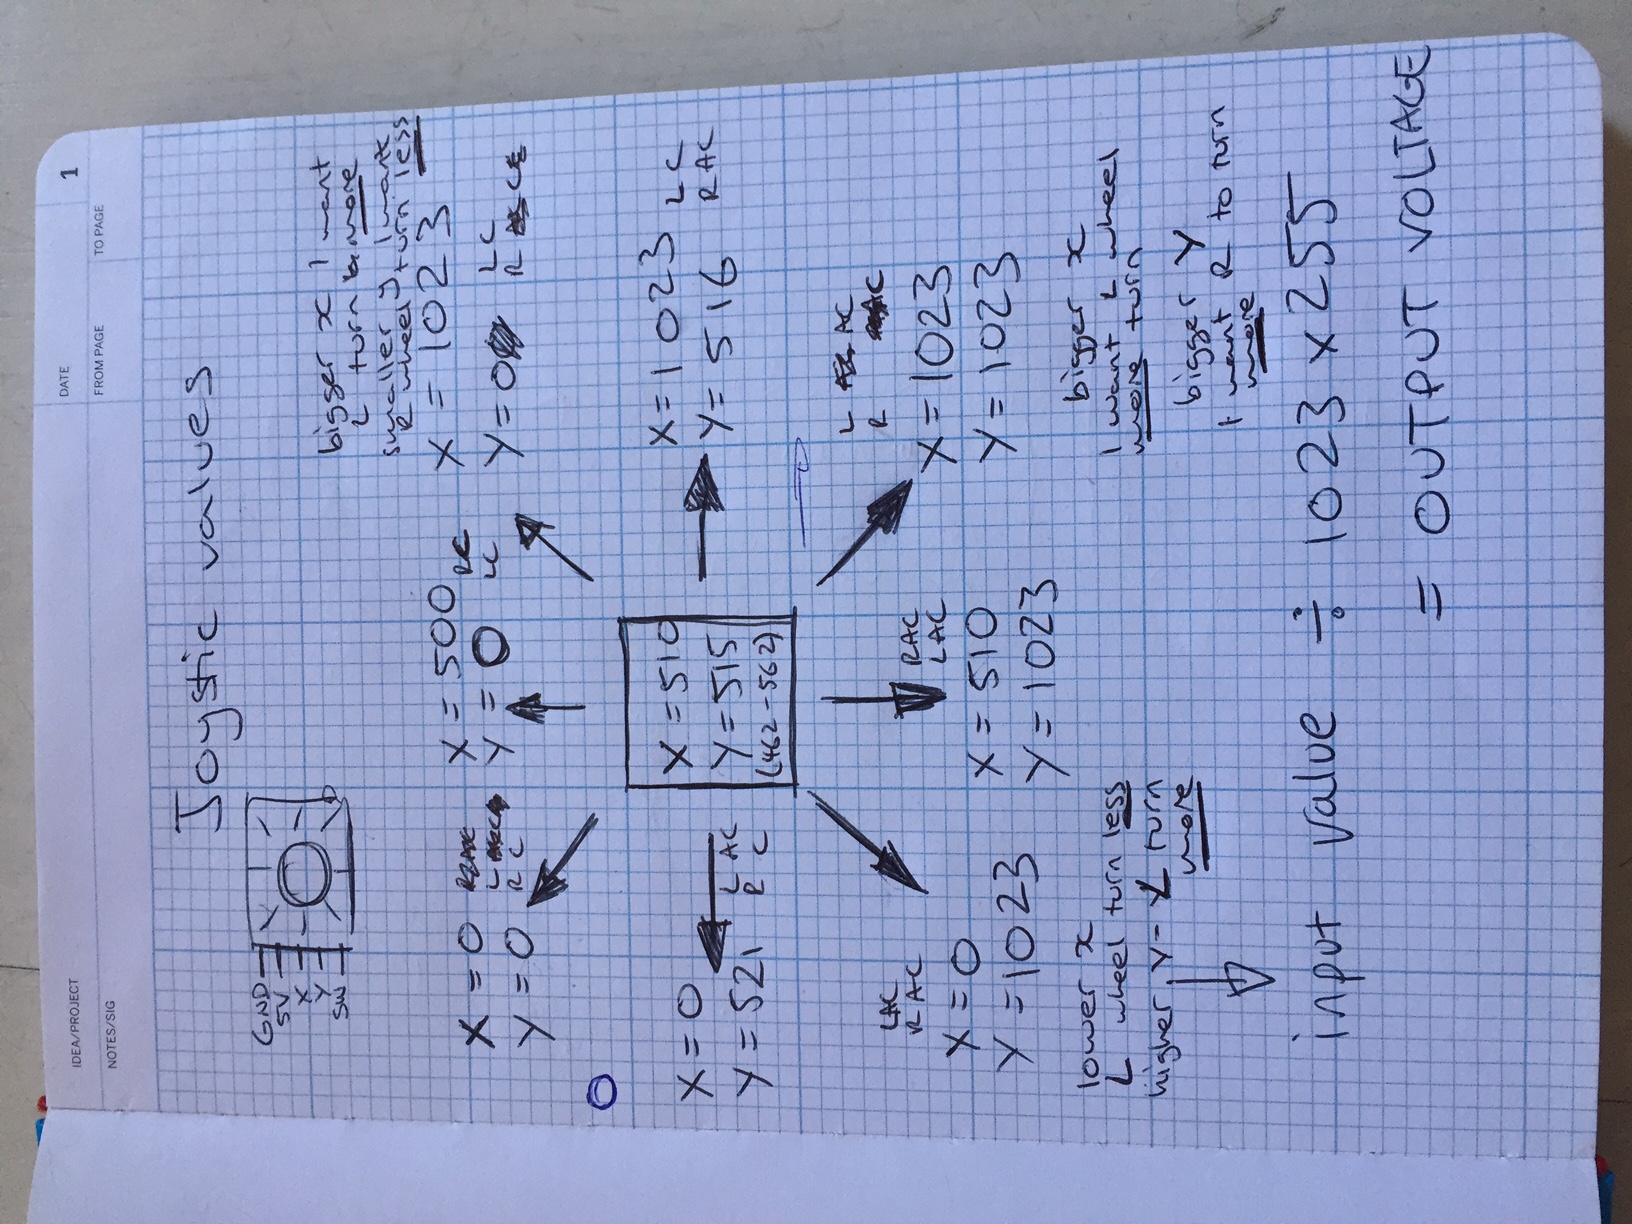 IDEA/PROJECT
DATE
1
NOTES/SIG
FROM PAGE
TO PAGE
Joystic values
GND
5V
X
Y
SW
bigger x I want
L turn more
smaller y I want
R wheel turn less
X = 0
Y = 0
L
R C
X = 500
Y = 0
RC
LC
X = 1023
Y = 0
LC
R
X = 0
Y = 521
L AC
R C
X = 510
Y = 515
(462 - 562)
X = 1023
Y = 516
L C
R AC
LAC
R AC
X = 0
Y = 1023
RAC
LAC
X = 510
Y = 1023
L AC
R AC
X = 1023
Y = 1023
lower x
L wheel turn less
higher y - L turn
more
bigger x
I want L wheel
more turn
bigger Y
I want R to turn
more
input value ÷ 1023 x 255
= OUTPUT VOLTAGE